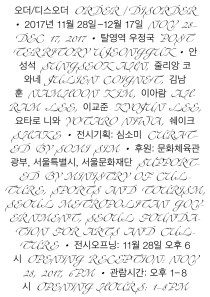 오더/디스오더 ORDER /DISORDER
• 2017년 11월 28일–12월 17일 NOV 28–
DEC 17, 2017 • 탈영역 우정국 POST
TERRITORY UJEONGGUK • 안
성석 SUNGSEOK AHN, 줄리앙 코
와네 JULIEN COIGNET, 김남
훈 NAMHOON KIM, 이아람 AH
RAM LEE, 이교준 KYOJUN LEE,
요타로 니와 YOTARO NIWA, 쉐이크
SHAKE • 전시기획: 심소미 CURAT
ED BY SOMI SIM • 후원: 문화체육관
광부, 서울특별시, 서울문화재단 SUPPORT
ED BY MINISTRY OF CUL
TURE, SPORTS AND TOURISM,
SEOUL METROPOLITAN GOV
ERNMENT, SEOUL FOUNDA
TION FOR ARTS AND CUL
TURE • 전시오프닝: 11월 28일 오후 6
시 OPENING RECEPTION: NOV
28, 2017, 6PM • 관람시간: 오후 1–8
시 OPENING HOURS: 1–8PM